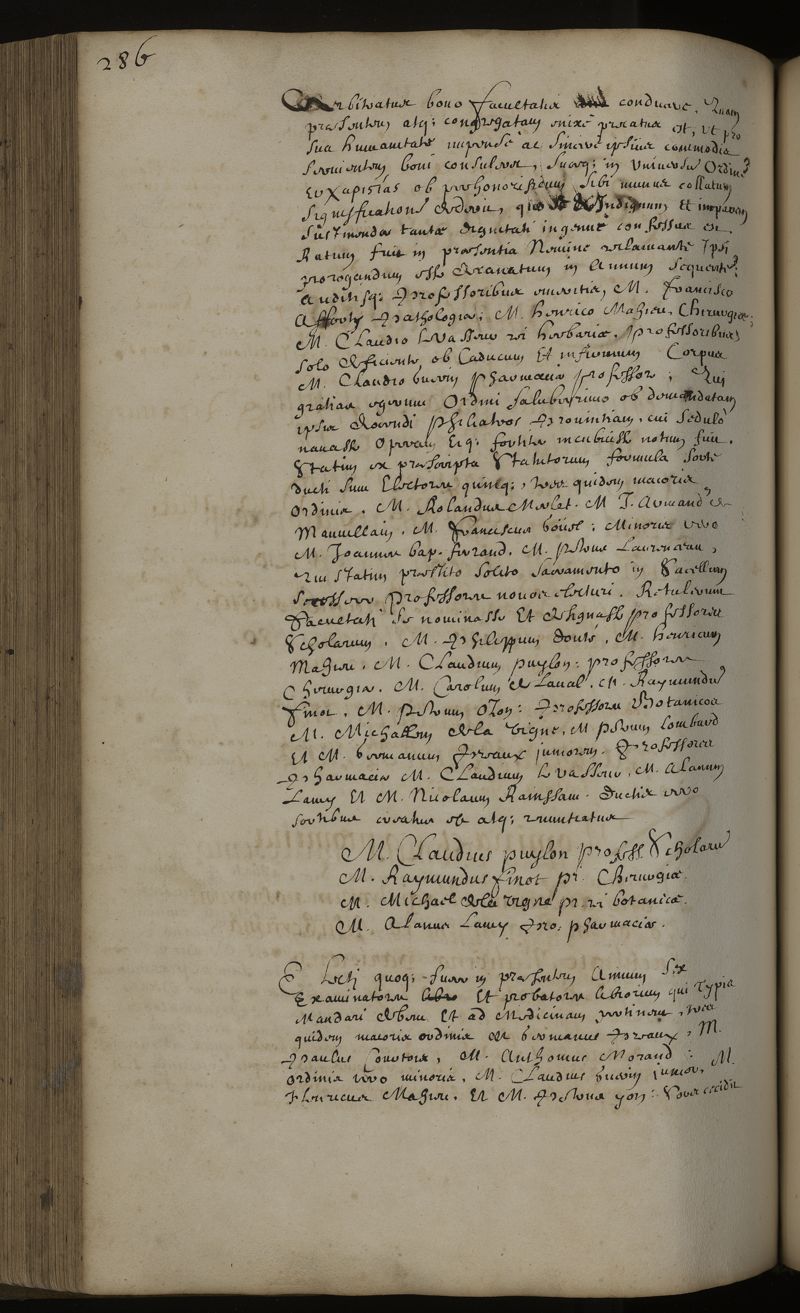 286
arbitratur bono facultatis conducere. Quam
præsentem atq; congregatam enixè precatur est, ut pro
sua humanitate impensè ac sincerè ipsius commodis
servientem boni consulere, suasq; in universum Ordinem
εὐχαριστίας ob perhonorificum sibi munus collatum
significationes indignum et imparem
sustinendæ tantæ dignitati ingenuè confessus est.
Ratum fuit in præsentia Nemine reclamante Ipsi
prorogandum esse decanatum in Annum sequentem.
auditisq; Professoribus emeritis, M. Francisco
Afforty Pathologiæ; M. Henrico Mahieu, Chirurgiæ;
M. Claudio Levasseur rei herbariæ, professoribus
solo deficiente, ob caducum et infirmum Corpus
M. Claudio Guerin pharmaciæ professore; Qui
gratias egerunt Ordini saluberrimo ob demandatam
ipsis docendi philiatros Provintiam, cui sedulò
navasse operam eiq; fortiter incubuisse notum fuit.
Statim ex præscripto Statutorum formula sorte
ducti sunt Electores quinq;, tres quidem maioris
Ordinis, M. Rolandus Merlet. M. J. Armand de
Mauvillain, M. Franciscus
 Minoris vero
M. Joannes bap. ferrand. M. petrus
Qui statim præstito solito sacramento in Sacellum
secessere professores novos electuri. Retulerunt
Facultati se nominasse et designasse professores
Scholarum, M. Philippum douté, M. Henricum
Mahieu, M. Claudium puylon: professores
Chirurgiæ, M. Carolum de Laval, M. Raymundum
finot, M. petrum Ozon: Professores Botanicos
M. Michaelem de la Vigne, M petrum Lombard
et M. Germanum Preaux juniorem. Professores
Pharmaciæ M. Claudium Levasseur, M. Alanum
Lamy et M. Nicolaum Rainssant. Ductis vero
sortibus creatus est atq; renuntiatus
M. Claudius puylon profess. Scholarum
M. Raymundus finot pr. Chirurgiæ.
M. Michael de la Vigne pr. rei botanicæ.
M. Alanus Lamy pro. pharmaciæ.
Electi quoq; fuere in præsentem Annum Sex
Examinatores et probatores librorum qui Typis
Mandari debent et ad Medicinam pertinent, tres
quidem maioris ordinis Germanus Preaux, M.
Paulus Courtois, M. Anthonius Morand:
ordinis vero minoris, M. Claudius Guerin junior, M.
Henricus Mahieu, et M. Petrus yon: